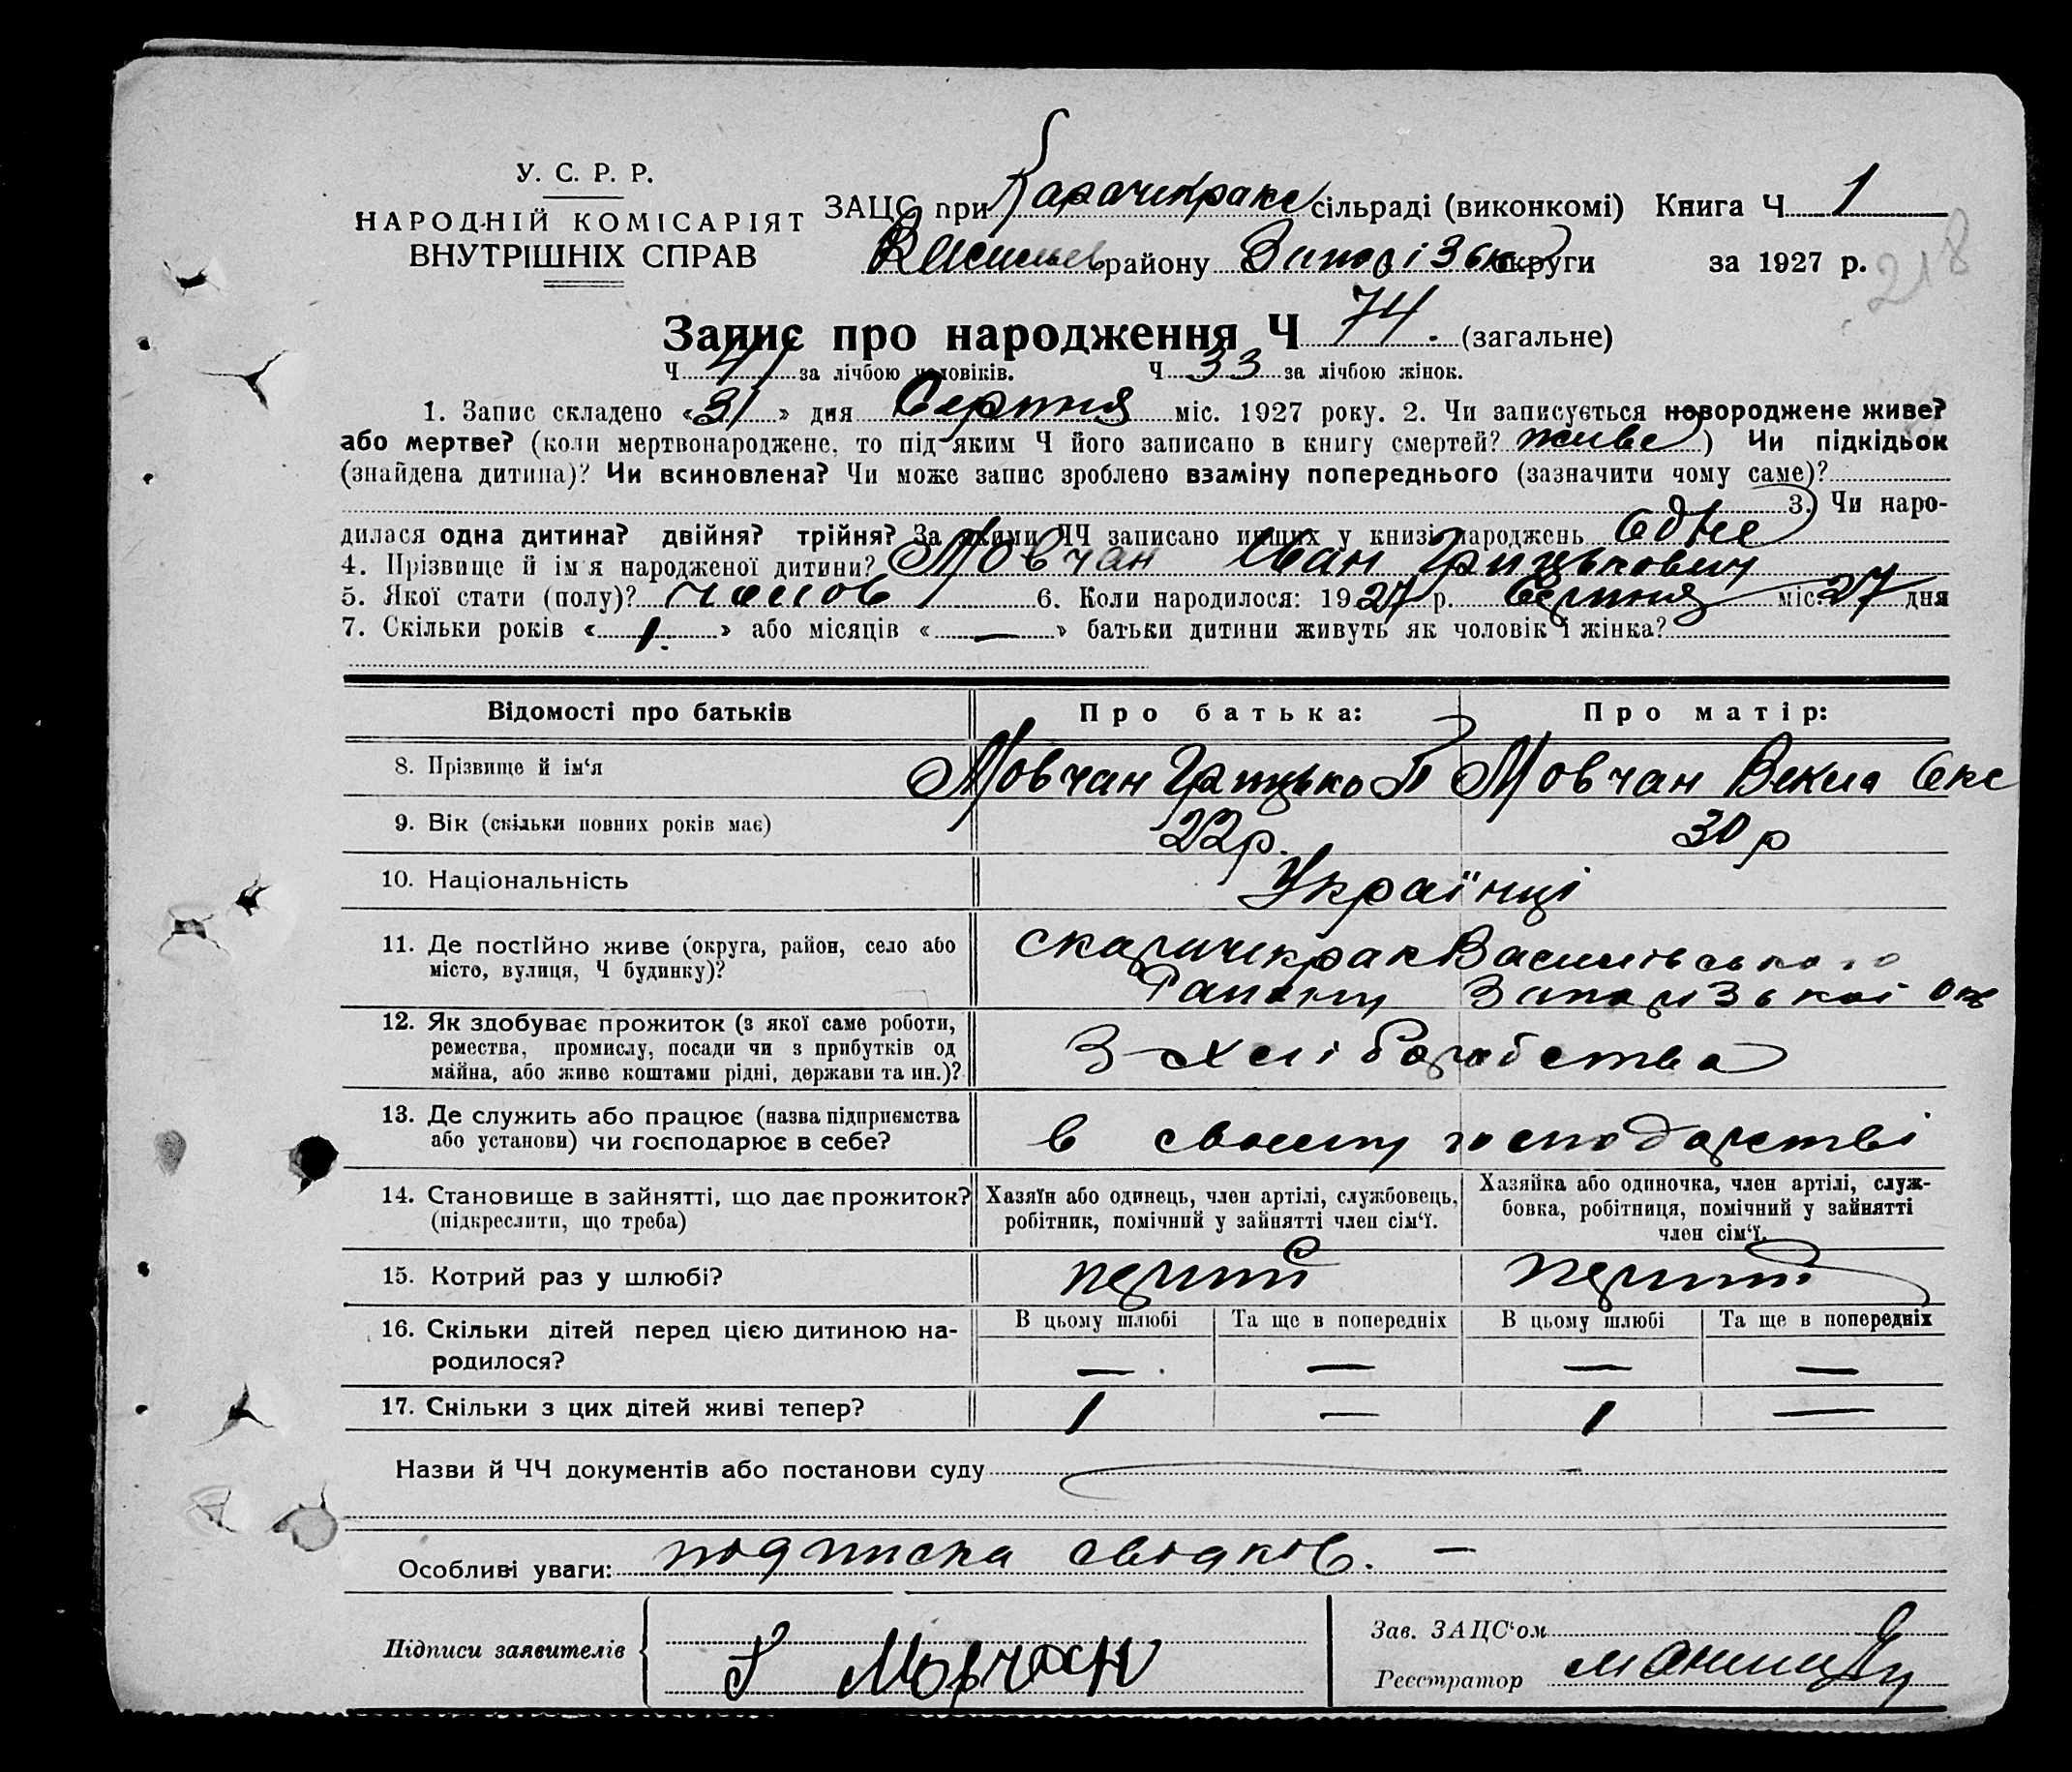 У. С. Р. Р.
НАРОДНІЙ КОМІСАРІЯТ
ВНУТРІШНІХ СПРАВ
ЗАЦС при Карачекраке сільраді (виконкомі) Книга Ч 1
Василів району Запорізьк округи за 1927 р.
218
Запис про народження Ч 74. (загальне)
Ч 41 за лічбою чоловіків. Ч 33 за лічбою жінок.
1. Запис складено «31» дня Серпня міс. 1927 року. 2. Чи записується новороджене живе?
або мертве? (коли мертвонароджене, то під яким Ч його записано в книгу смертей? живе) Чи підкідьок
(знайдена дитина)? Чи всиновлена? Чи може запис зроблено взаміну попереднього (зазначити чому саме)?
3. Чи наро-
дилася одна дитина? двійня? трійня? За якими ЧЧ записано инших у книзі народжень одне
4. Прізвище й ім'я народженої дитини? Мовчан Іван Грицькович
5. Якої стати (полу)? чолов 6. Коли народилося: 1927 р. Серпня міс. 27 дня
7. Скільки років «1.» або місяців «—» батьки дитини живуть як чоловік і жінка?
Відомості про батьків Про батька: Про матір:
8. Прізвище й ім'я Мовчан Грицько П Мовчан Векла
9. Вік (скільки повних років має) 22р. 30 р
10. Національність Українці
11. Де постійно живе (округа, район, село або місто, вулиця, Ч будинку)? с Карачекрак Василівського
Району Запорізької Окр
12. Як здобуває прожиток (з якої саме роботи, ремества, промислу, посади чи з прибутків од майна, або живе коштами рідні, держави та ин.)? З хліборобства
13. Де служить або працює (назва підприємства або установи) чи господарює в себе? в своєму господарстві
14. Становище в зайнятті, що дає прожиток? (підкреслити, що треба) Хазяїн або одинець, член артілі, службовець, робітник, помічний у зайнятті член сім'ї. Хазяйка або одиночка, член артілі, служ-
бовка, робітниця, помічний у зайнятті
член сім'ї.
15. Котрий раз у шлюбі? перший перший
16. Скільки дітей перед цією дитиною на-
родилося? В цьому шлюбі Та ще в попередніх В цьому шлюбі Та ще в попередніх
— — — —
17. Скільки з цих дітей живі тепер? 1 — 1 —
Назви й ЧЧ документів або постанови суду
Особливі уваги: подписка свідків. —
Підписи заявителів Г Мовчан
Зав. ЗАЦС'ом
Реєстратор